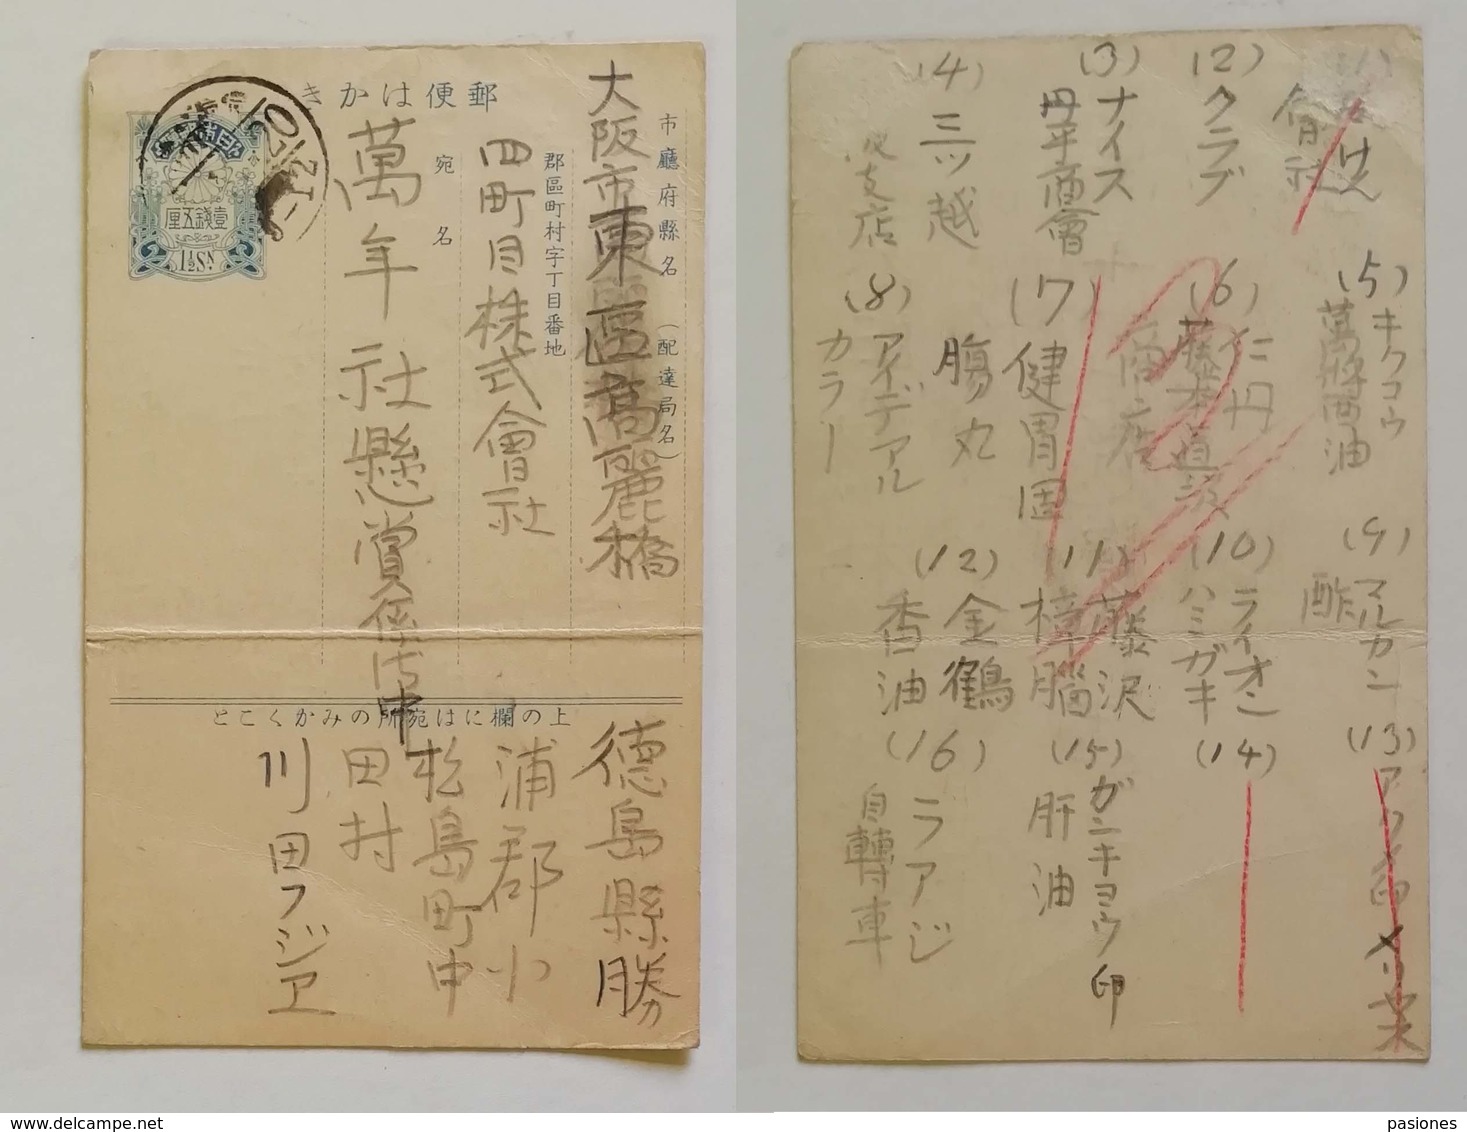 郵便はかき
大日本帝國郵便
壹錢五厘
1½Sn
20
-12
市廳府縣名(配達局名)
郡區町村字丁目番地
宛名
大阪市東區高麗橋
四町目株式會社
萬年社懸賞係御中
上の欄には宛所のみかくこと
徳島縣勝
浦郡小
松島町中
田村
川田フジヱ
(1)
會社
(2)
クラブ
(3)
ナイス
丹平商會
(4)
三ッ越
支店
(5)
キクコウ
萬
油
(6)
仁丹
藤本道
商店
(7)
健胃固
腸丸
(8)
アイデアル
カラー
(9)
マルカン
酢
(10)
ライオン
ハミガキ
(11)
藤沢
樟腦
(12)
金鶴
香油
(13)
(14)
(15)
ガンキヨウ印
肝油
(16)
ラアジ
自轉車
12
www.delcampe.net
pasiones